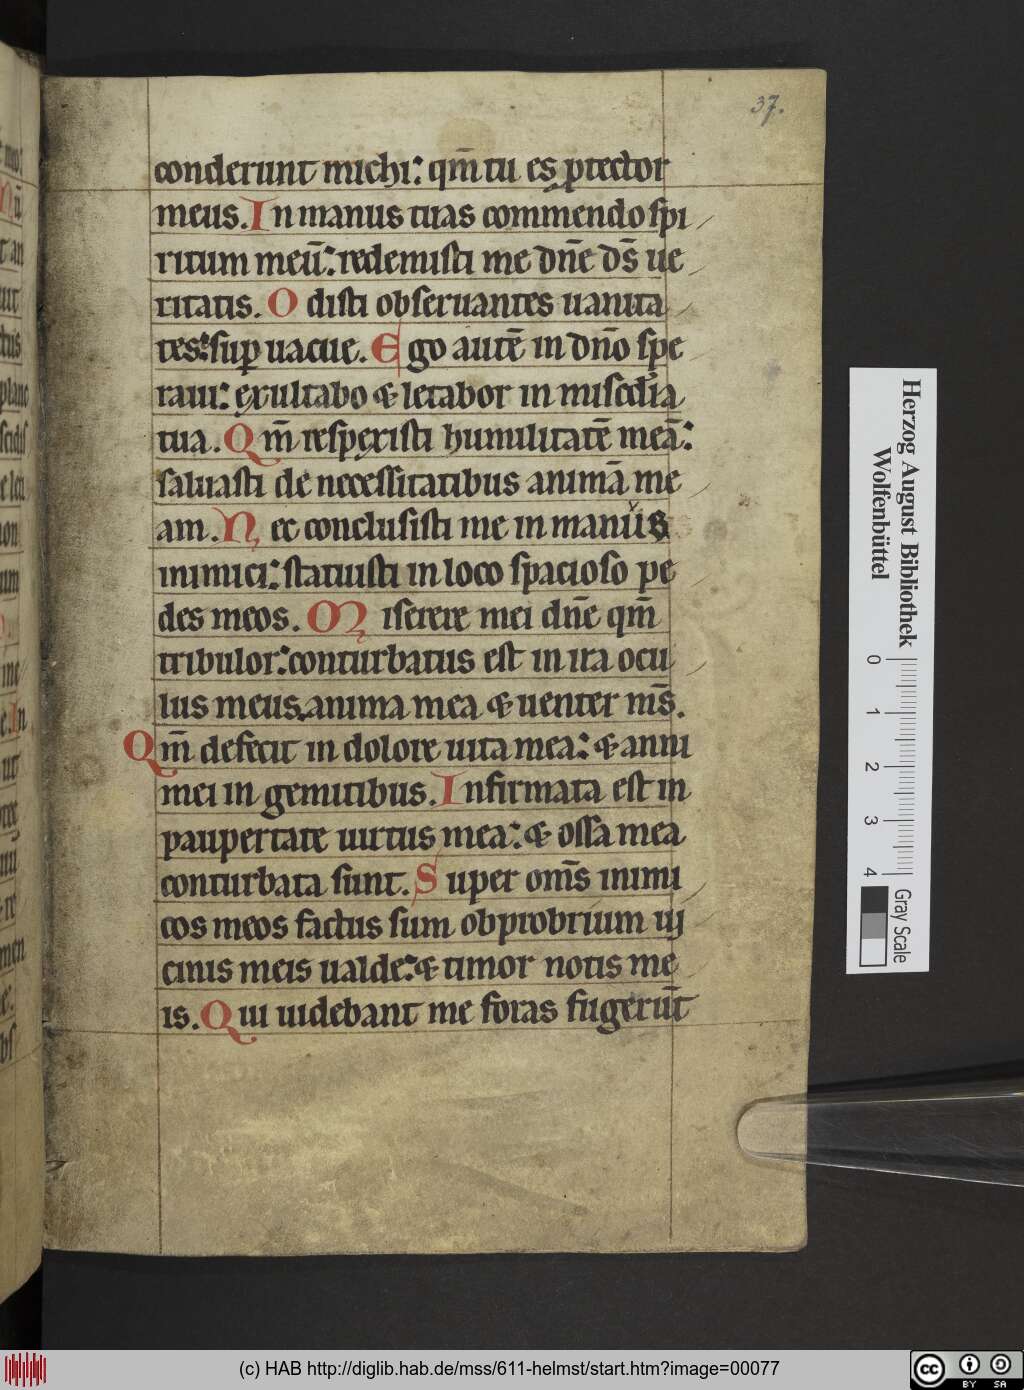 37.
conderunt michi: qm̄ tu es ꝓtector
meus. In manus tuas commendo spi
ritum meū: redemisti me dn̄e ds̄ ue
ritatis. Odisti obseruantes uanita
tes: suꝑuacue. Ego autē in dn̄o spe
raui: exultabo & letabor in mis̄cdia
tua. Qm̄ respexisti humilitatē meā:
saluasti de necessitatibus animā me
am. Nec conclusisti me in manus
inimici: statuisti in loco spacioso pe
des meos. Miserere mei dn̄e qm̄
tribulor: conturbatus est in ira ocu
lus meus, anima mea & uenter ms̄.
Qm̄ defecit in dolore uita mea: & anni
mei in gemitibus. Infirmata est in
paupertate uirtus mea: & ossa mea
conturbata sunt. Super oms̄ inimi
cos meos factus sum obprobrium ui
cinis meis ualde: & timor notis me
is. Qui uidebant me foras fugerūt
Herzog August Bibliothek
Wolfenbüttel
0 1 2 3 4
Gray Scale
(c) HAB http://diglib.hab.de/mss/611-helmst/start.htm?image=00077
cc BY SA